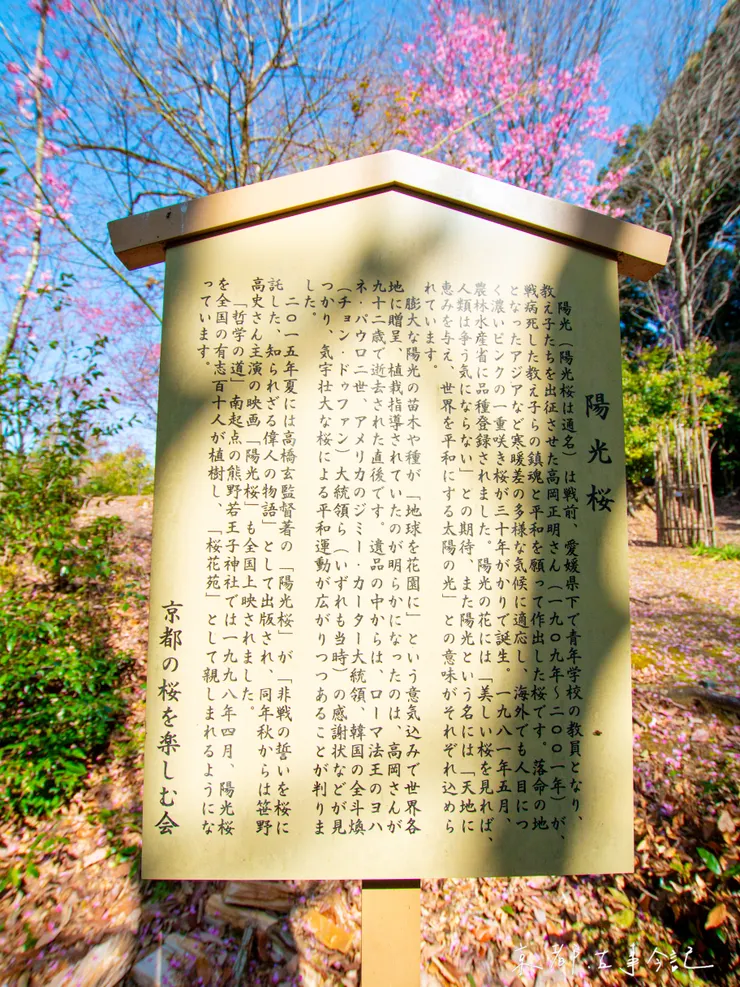 陽光桜
陽光（陽光桜は通名）は戦前、愛媛県下で青年学校の教員となり、
教え子たちを出征させた高岡正明さん（一九〇九年～二〇〇一年）が、
戦病死した教え子らの鎮魂と平和を願って作出した桜です。落命の地
となったアジアなど寒暖差の多様な気候に適応し、海外でも人目につ
く濃いピンクの一重咲き桜が三十年がかりで誕生。一九八一年五月、
農林水産省に品種登録されました。陽光の花には「美しい桜を見れば、
人類は争う気にならない」との期待、また陽光という名には「天地に
恵みを与え、世界を平和にする太陽の光」との意味がそれぞれ込めら
れています。
膨大な陽光の苗木や種が「地球を花園に」という意気込みで世界各
地に贈呈、植栽指導されていたのが明らかになったのは、高岡さんが
九十二歳で逝去された直後です。遺品の中からは、ローマ法王のヨハ
ネ・パウロ二世、アメリカのジミー・カーター大統領、韓国の全斗煥
（チョン・ドゥファン）大統領ら（いずれも当時）の感謝状などが見
つかり、気宇壮大な桜による平和運動が広がりつつあることが判りま
した。
二〇一五年夏には高橋玄監督著の「陽光桜」が「非戦の誓いを桜に
託した、知られざる偉人の物語」として出版され、同年秋からは笹野
高史さん主演の映画「陽光桜」も全国上映されました。
「哲学の道」南起点の熊野若王子神社では一九九八年四月、陽光桜
を全国の有志百十人が植樹し、「桜花苑」として親しまれるようにな
っています。
京都の桜を楽しむ会